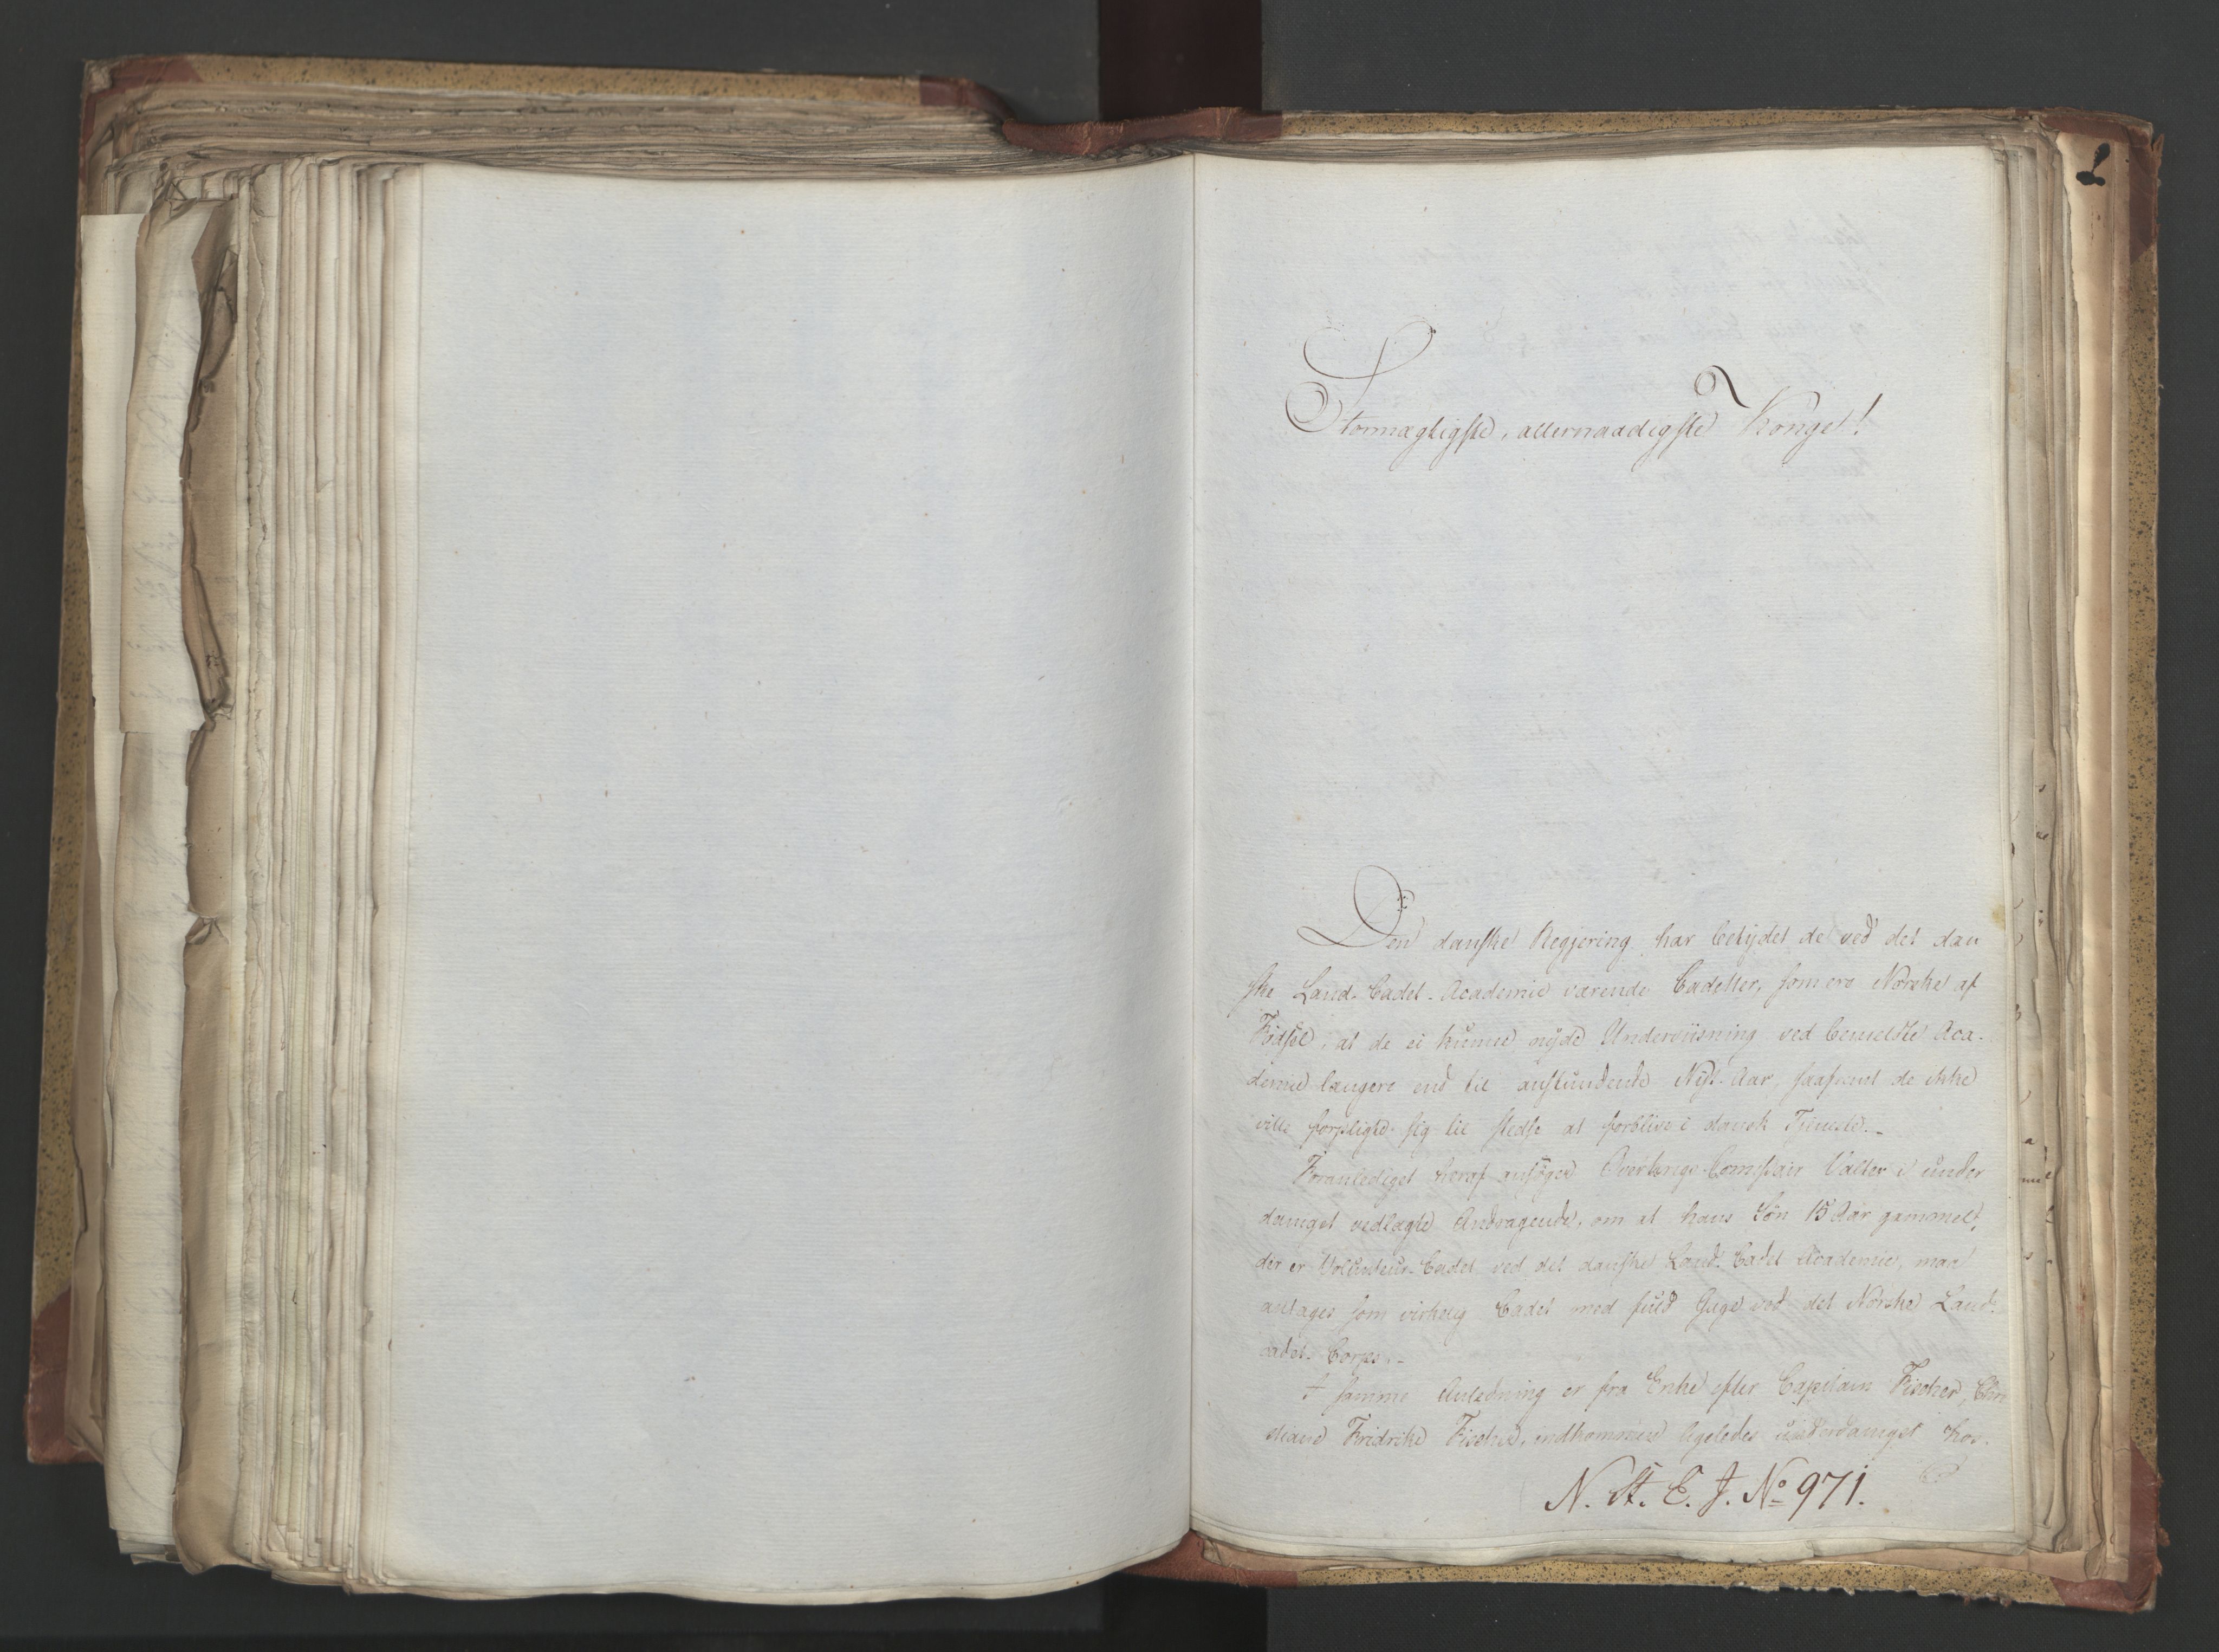 Stormægtigste, allernaadigste Konge!
Den danske Regjering har betydet de ved det dan
ske Land-Cadet-Academie værende Cadetter, som ere Norske af
Fødsel, at de ei kunne nyde Underviisning ved bemeldte Aca-
demie længere end til anstundende Nyt-Aar, saafremt de ikke
ville forpligte sig til stedse at forblive i dansk Tieneste.-
Foranlediget heraf ansøger Overkrigs-Commissair Valter i under
danigst vedlagte Andragende, om at hans Søn 15 Aar gammel,
der er Volunteur-Cadet ved det danske Land-Cadet Academie, maa
antages som virkelig Cadet med fuld Gage ved det Norske Land-
cadet-Corps.-
I samme Anledning er fra Enke efter Capitain Fischer, Chri
stiane Fridrike Fischer, indkommen ligeledes underdanigst hos-
N. St. E. J. No 971.